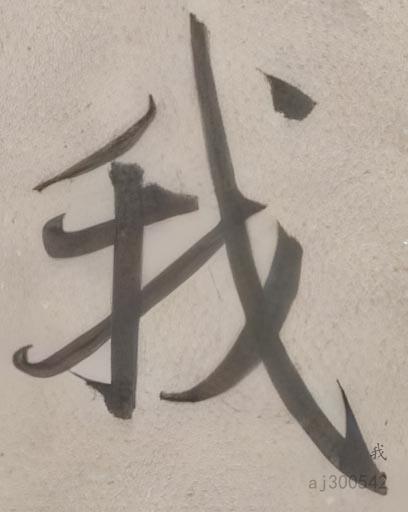 我
我
aj300542